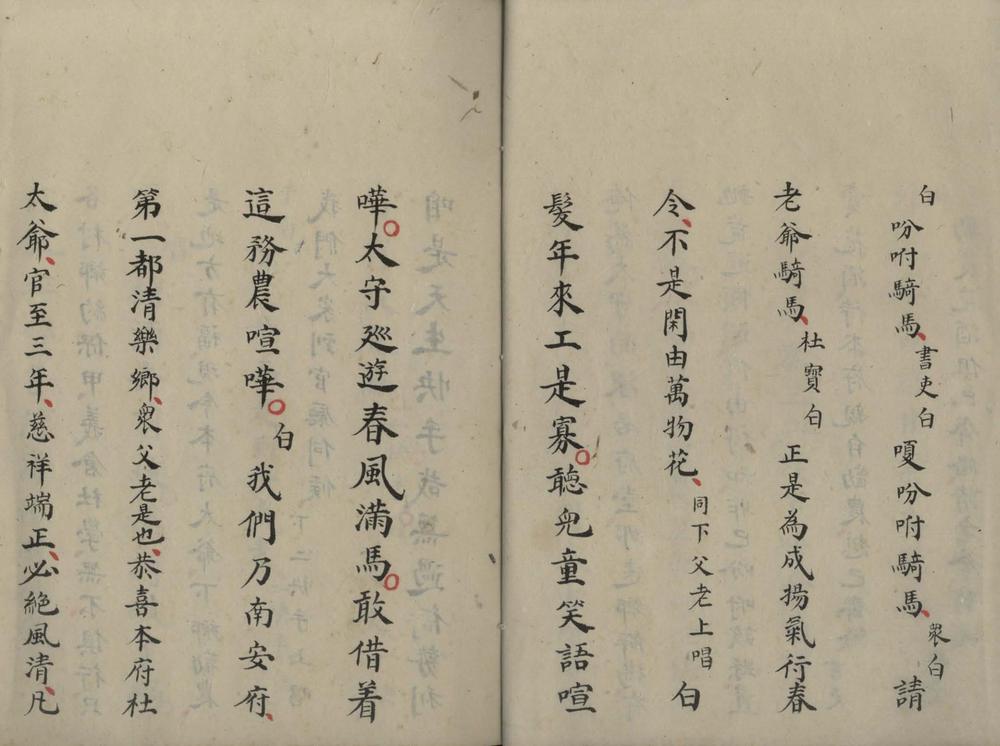 白吩咐騎馬、書吏白嗄吩咐騎馬、衆白請
老爺騎馬、杜寶白正是為成揚氣行春
令、不是閑由萬物花、同下父老上唱白
髮年來工是寡。聽兒童笑語喧
嘩。太守廵遊春風滿馬。敢借着
這務農喧嘩。白我們乃南安府、
第一都清樂鄉、衆父老是也、恭喜本府杜
太爺、官至三年、慈祥端正、必絕風清、凡